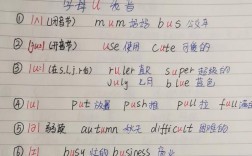 字母 U 发音
① [ʌ] (闭音节) mum 妈妈 bus 公交车
② [juː] (开音节) use 使用 cute 可爱的
③ [uː] (在s,l,j,r后) ruler 直尺 super 超级的
July 七月 blue 蓝色
④ [u] put 放置 push 推 pull 拉 full 满的
⑤ [ə] autumn 秋天 difficult 困难的
⑥ [ɪ] busy 忙的 business 商业